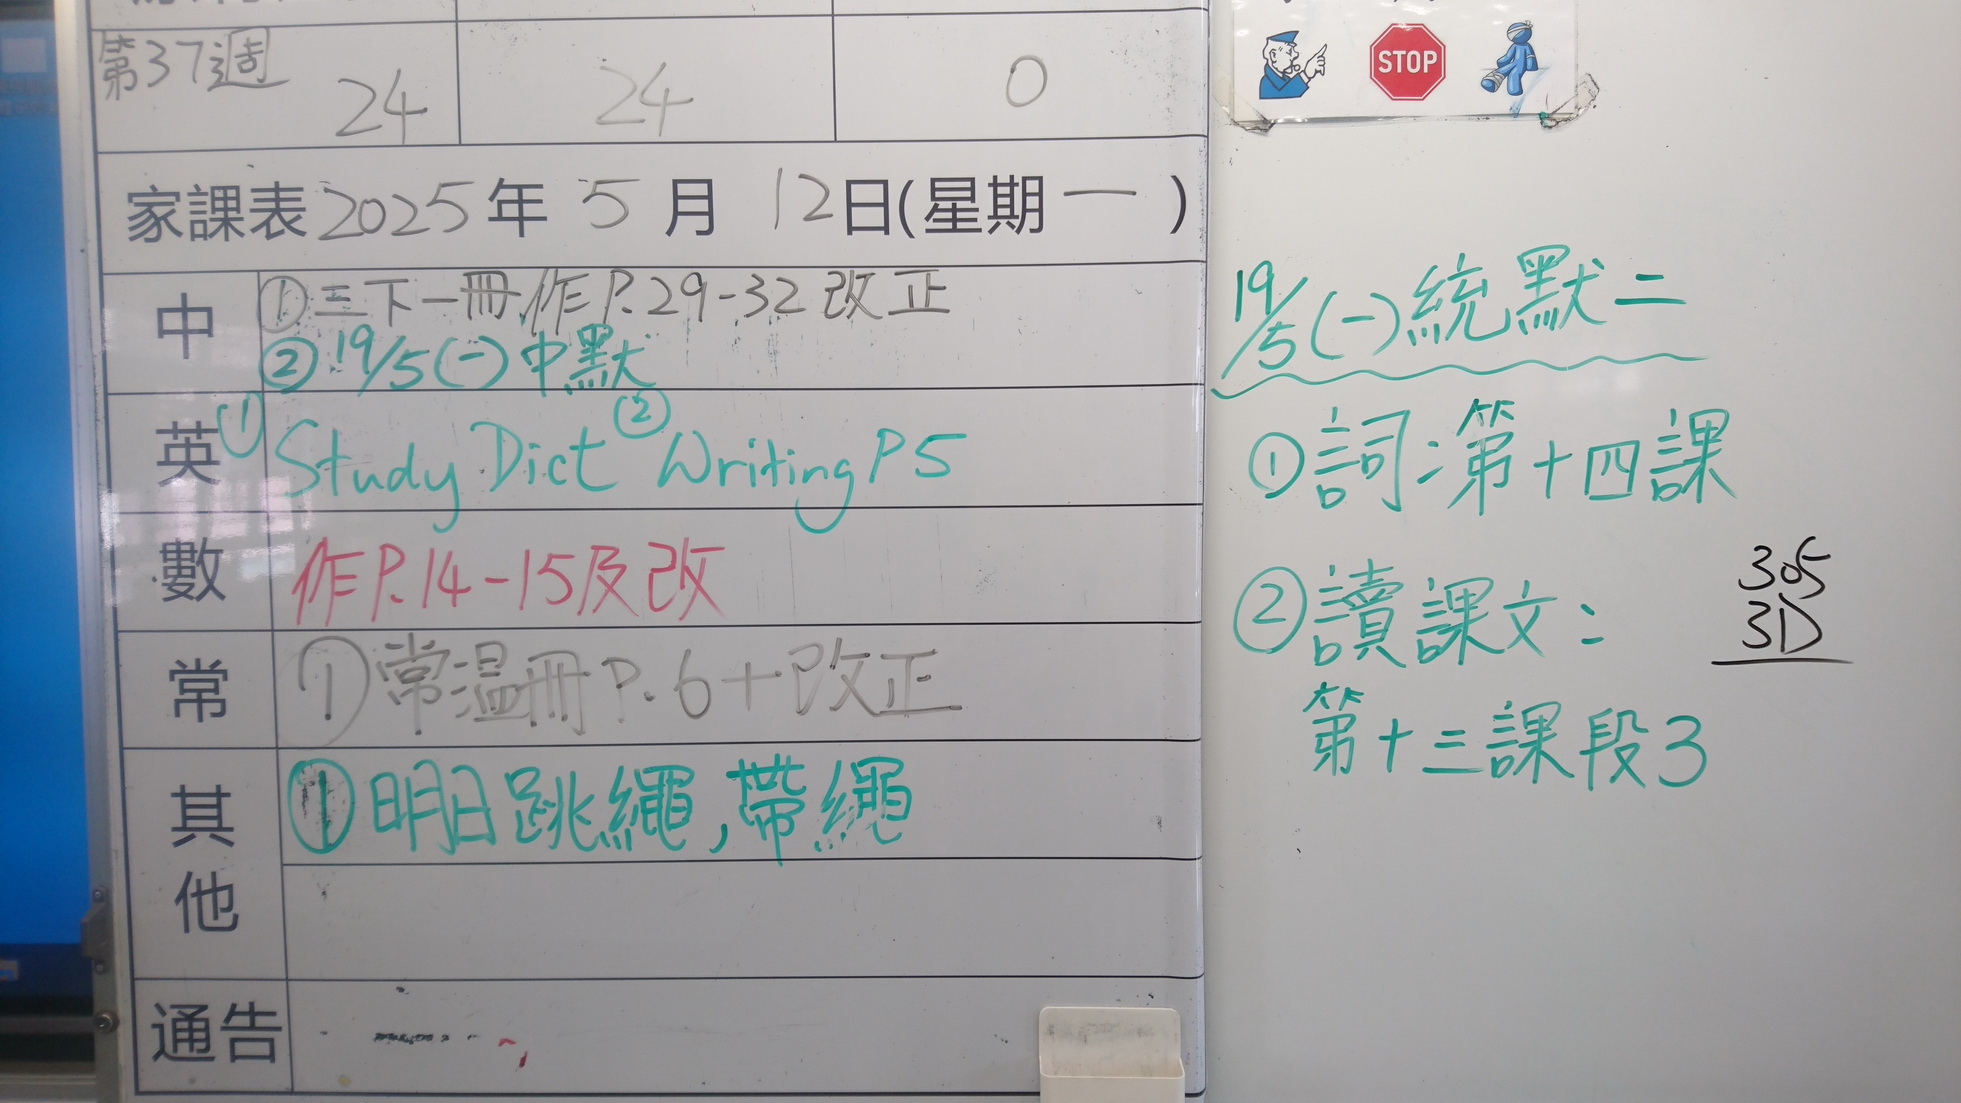 第37週 24 24 0
家課表2025年5月12日(星期一)
中 ①三下一冊作P.29-32改正
②19/5(一)中默
英 ①Study Dict ②Writing P5
數 作P.14-15及改
常 ①常溫冊P.6+改正
其他 ①明日跳繩,帶繩
通告
STOP
19/5(一)統默二
①詞:第十四課
②讀課文:
第十三課段3
305
3D